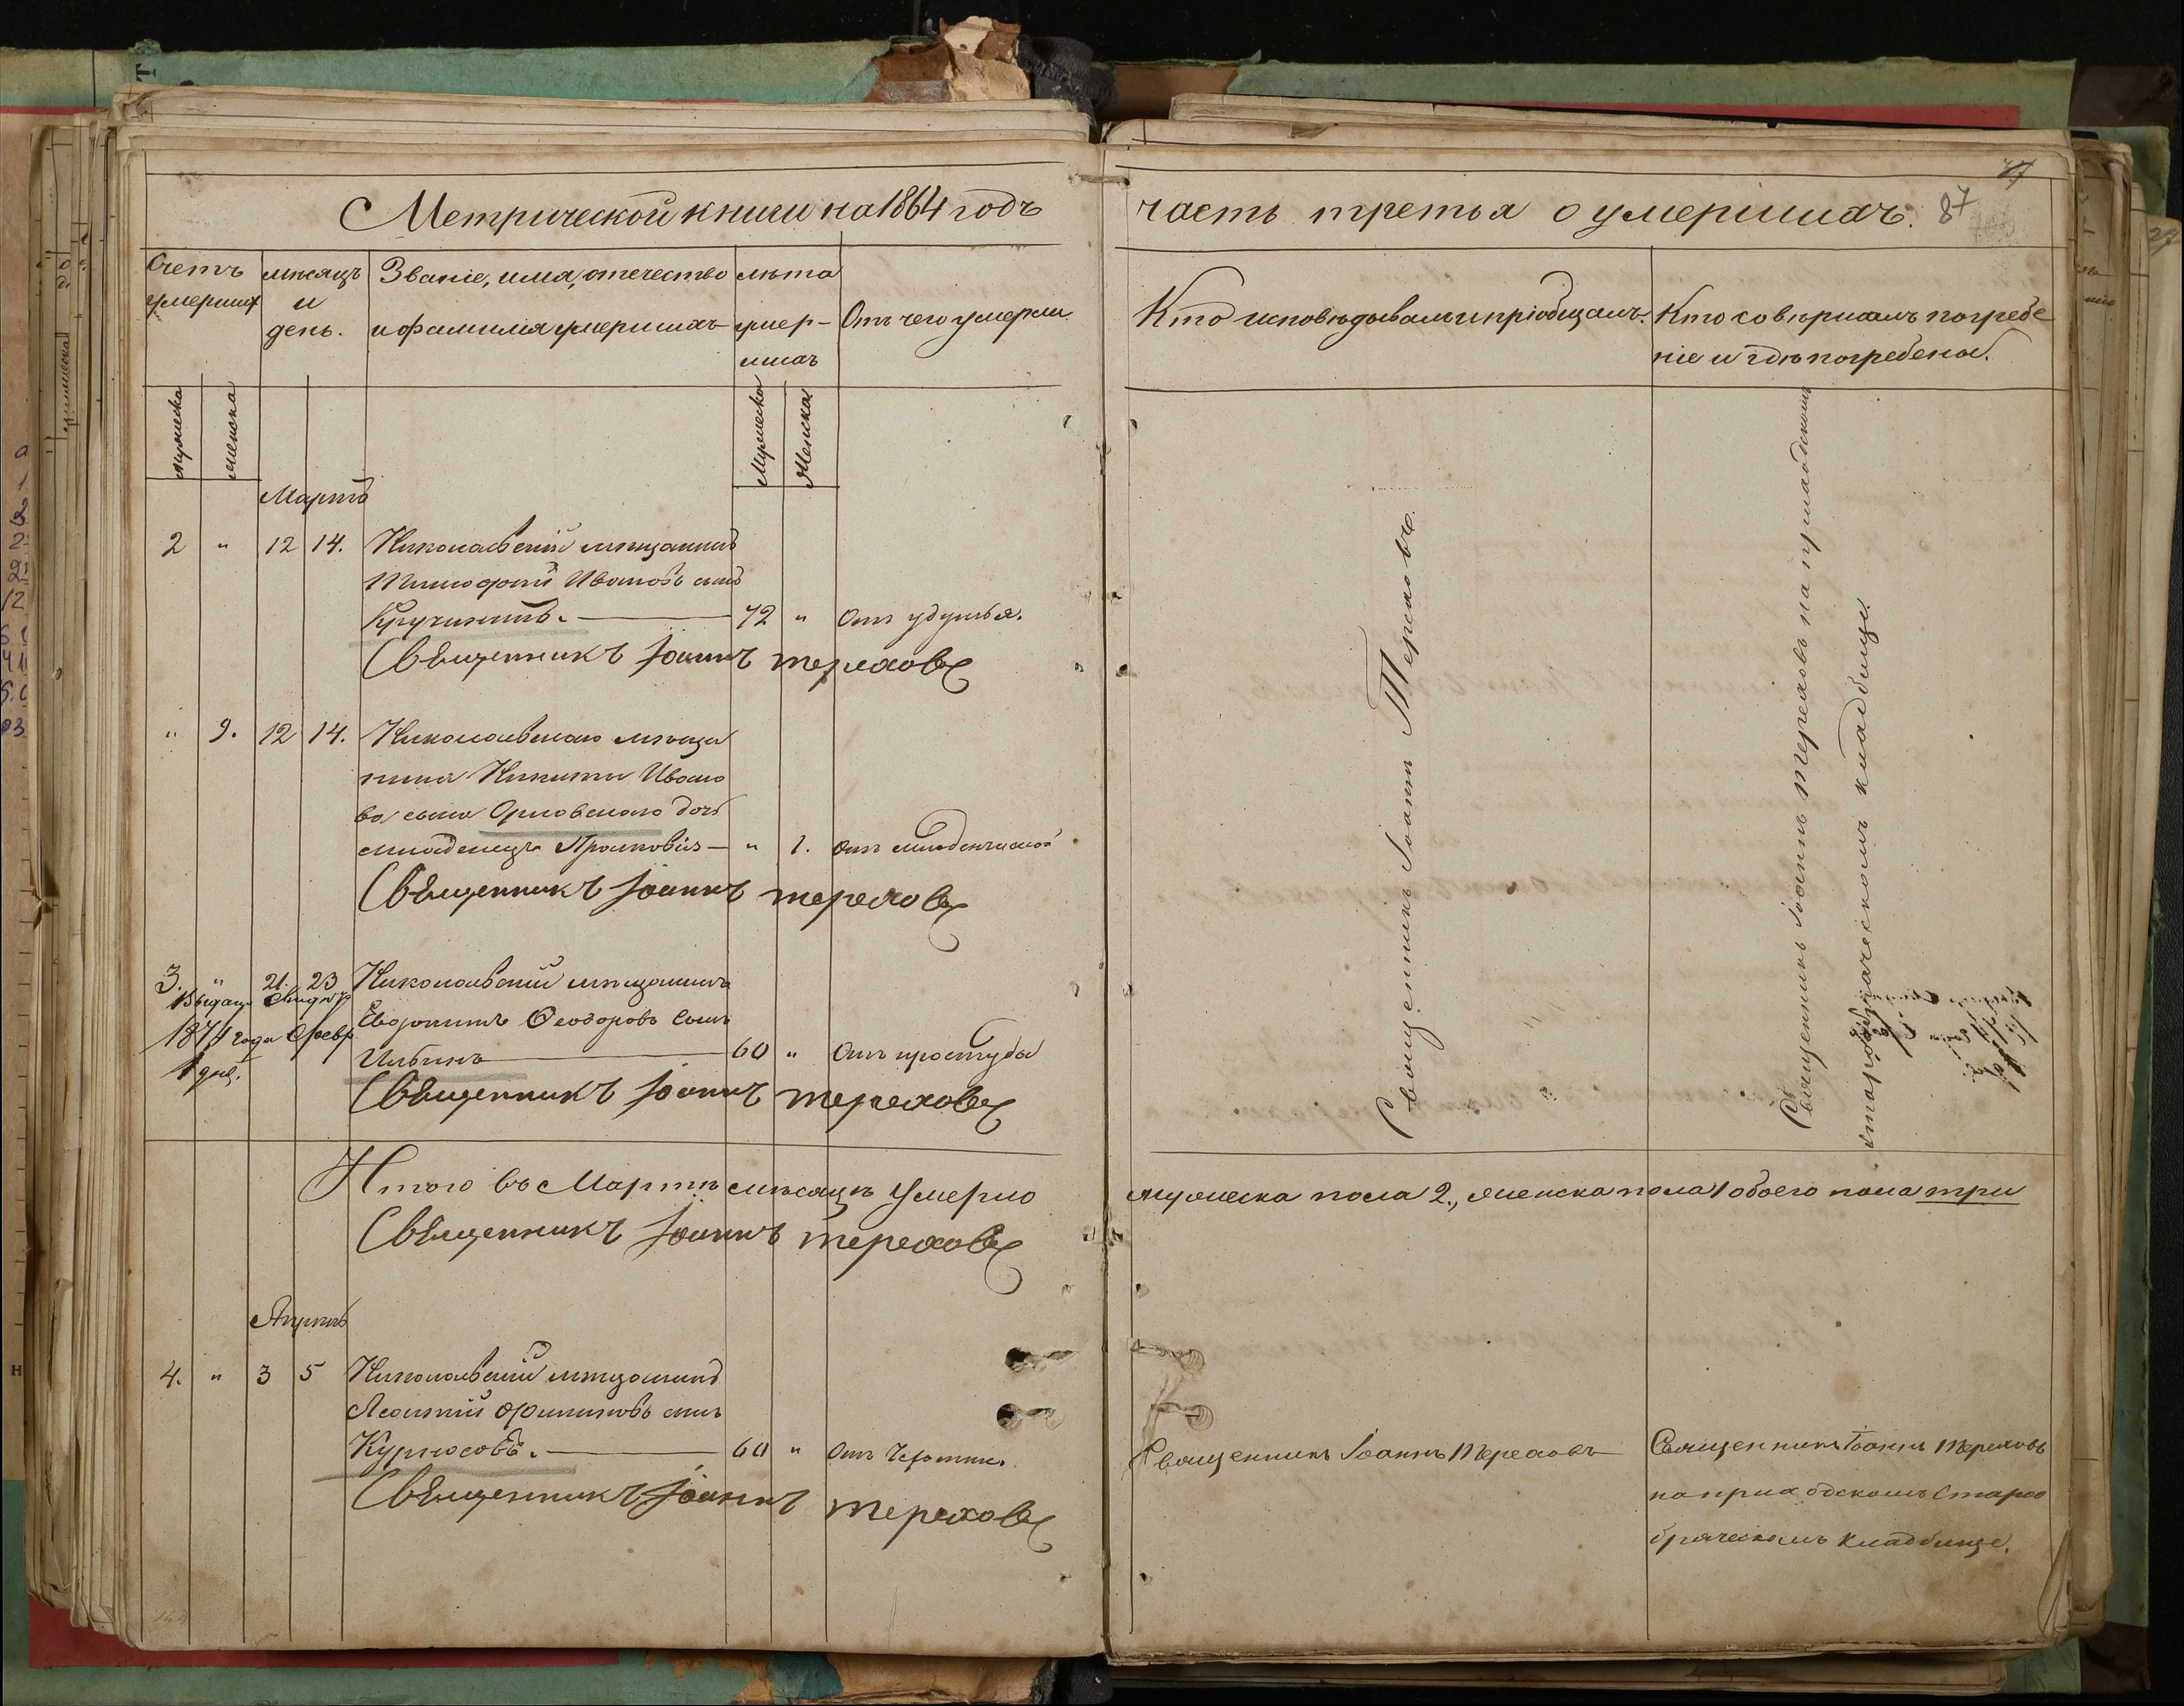 Метрической книги на 1864 годъ
часть третья о умершихъ. 87
Счетъ умершихъ
мѣсяцъ и день.
Званіе, имя, отечество
и фамилія умершихъ
лѣта умер-
шихъ
Отъ чего умерли
Кто исповѣдывалъ и пріобщалъ.
Кто совершалъ погребе
ніе и гдѣ погребены.
мужеска
женска
Мужеска
Женска
Мартъ
2 " 12 14. Николаевскій мѣщанинъ
Тимофей Ивановъ сынъ
Кручининъ. — 72 " Отъ удушья.
Священникъ Іоаннъ Тереховъ
" 9. 12 14. Николаевскаго мѣща
нина Никиты Ивано
ва сына Орловскаго дочь
младенецъ Прасковія — " 1. Отъ младенческой
Священникъ Іоаннъ Тереховъ
3. " 21. 23 Николаевскій мѣщанинъ
Феодоровъ сынъ
Ильинъ — 60 " Отъ простуды
Священникъ Іоаннъ Тереховъ
1874 года Февр
1 дня.
Священникъ Іоаннъ Тереховъ.
Священникъ Іоаннъ Тереховъ на приходскомъ
старообрядческомъ кладбище.
Итого въ Мартѣ мѣсяцѣ умерло
мужеска пола 2., женска пола 1 обоего пола три
Священникъ Іоаннъ Тереховъ
Апрель
4. " 3 5 Николаевскій мѣщанинъ
Леонтій Филиповъ сынъ
Курносовъ. — 60 " Отъ Чахотки.
Священникъ Іоаннъ Тереховъ
Священникъ Іоаннъ Тереховъ
Священникъ Іоаннъ Тереховъ
на приходскомъ Старо
брядческомъ кладбище.